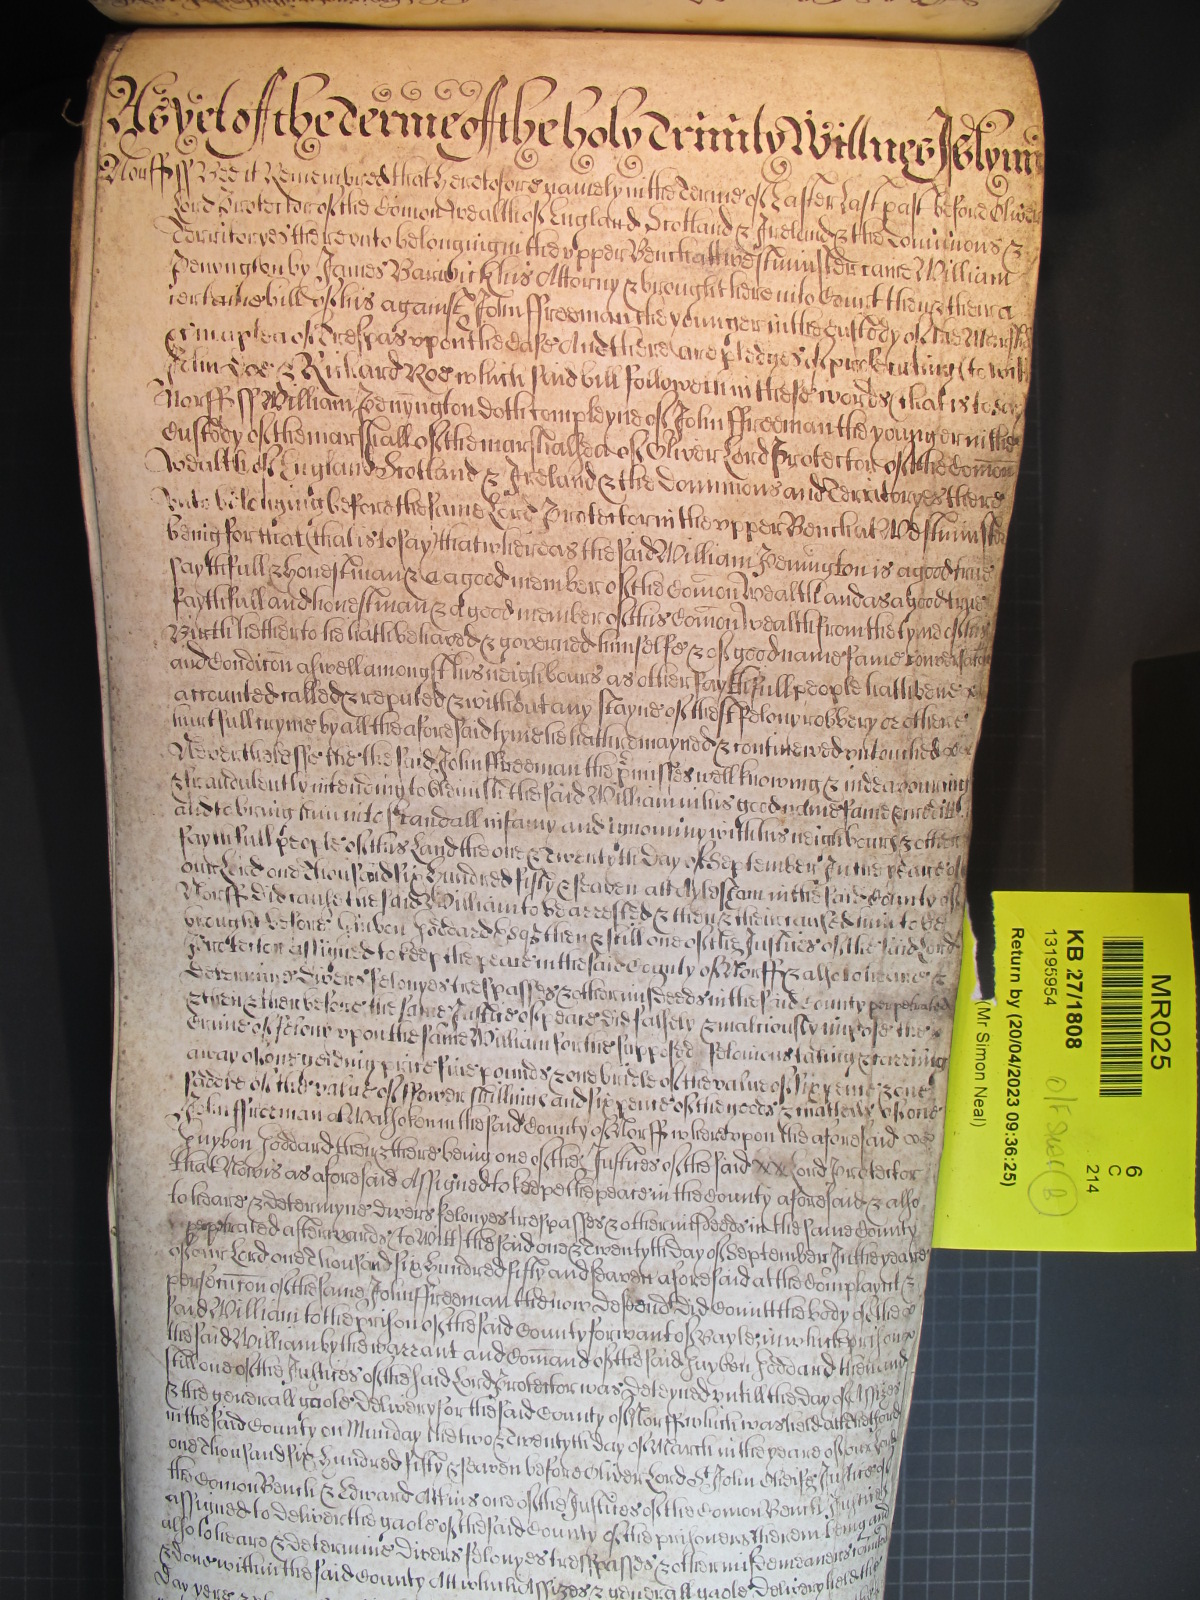 As yet of the Terme of the holy Trinity Willnes
Norff ss Bee it Remembred that heretofore namely in the Terme of Easter Last past before Oliver
Lord Protector of the Comon wealth of England Scotland & Ireland & the Dominions &
Territoryes thereunto belonging in the upper Bench att Westminster came William
Penington by James Barwick his Attorny & brought here into Court then & there a
certaine bill of his against John ffreeman the younger in the custody of the Marshall
&c in a plea of Trespas upon the Case And there are pledges of prosecuting (to witt
John Doe & Richard Roe which said bill followeth in these words that is to say
Norff ss William Penington doth compleyne of John ffreeman the younger in the
Custody of the marshall of the marshalsea of Oliver Lord Protector of the Comon
wealth of England Scotland & Ireland & the Dominions and Territoryes there
unto belonging before the same Lord Protector in the upper Bench at Westminster
being for that (that is to say) that whereas the said William Penington is a good true
faythfull & honest man & a good member of the Comon wealth and as a good true
faythfull and honest man & a good member of this Comon wealth from the tyme of his
Birth hetherto he hath behaved & governed himselfe & of good name fame conversation
and Condicon aswell amongst his neighbours as other faythfull people hath bene
accounted called & reputed & without any stayne of theft felony robbery or other
hurtfull cryme by all the aforesaid tyme he hath remayned & continewed untouched
Neverthelesse the the said John ffreeman the pmisses well knowing & indeavouring
& fraudulently intending to blemish the said William in his good name fame & credit
and to bring him into skandall infamy and ignominy with his neighbours & other
faythfull people of this Land the one & Twentyth day of September In the yeare of
our Lord one Thousand six hundred fifty & seaven att Aylsham in the said County of
Norff did cause the said William to be arrested & then & there caused him to be
brought before Guybon Goddard Esqr then & still one of the Justices of the said Lord
Protector assigned to keep the peace in the said County of Norff & also to heare &
determine Divers felonyes trespasses & other misdeeds in the said County perpetrated
& then & there before the same Justice of peace did falsely & maliciously impose the
Crime of felony upon the same William for the supposed felonious taking & carrying
away of one gelding price five pounds & one bridle of the value of six pence & one
saddle of the value of ffower shillings and six pence of the goods & chattells of one
John ffreeman at Walsoken in the said County of Norff whereupon the aforesaid
Guybon Goddard then & there being one of the Justices of the said Lord Protector
that Now is as aforesaid Assigned to keepe the peace in the County aforesaid & also
to heare & determyne Divers felonyes trespasses & other misdeeds in the same County
perpetrated afterwards to witt the said one & Twentyth day of September In the yeare
of our Lord one Thousand six hundred fifty and seaven aforesaid at the Complaynt &
persecucon of the same John ffreeman the now defend did Comitt the body of the
said William to the prison of the said County for want of Bayle in which prison
the said William by the warrant and Comand of the said Guybon Goddard then and
still one of the Justices of the said Lord Protector was deteyned untill the day of Assizes
& the generall gaole delivery for the said County of Norff which was held att Thetford
in the said County on Munday the two & Twentyth day of March in the yeare of our Lord
one Thousand six hundred fifty & seaven before Oliver Lord St John Cheife Justice of
the Comon Bench & Edward Attkins one of the Justices of the Comon Bench Justices
assigned to deliver the gaole of the said County of the prisoners therein being and
also to heare & determine Divers felonyes trespasses & other misdemeanors
& done within the said County Att which Assizes & generall gaole delivery held the
Day
MR025
6
C
214
KB 27/1808
13195954
Return by (20/04/2023 09:36:25)
(Mr Simon Neal)